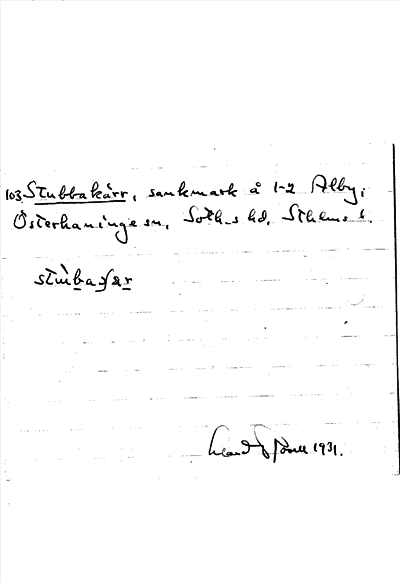 103. Stubbakärr, sankmark å 1-2 Alby,
Österhaninge sn, Soth-s hd, Sthlms l.
stùbaɕær
1931.